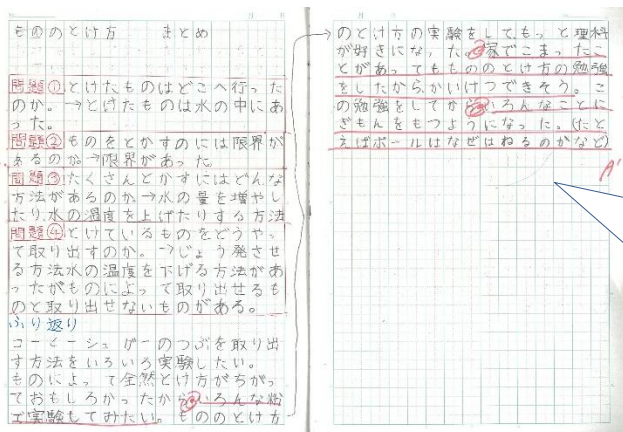 もののとけ方　まとめ
問題①とけたものはどこへ行った
のか。→とけたものは水の中にあ
った。
問題②ものをとかすのには限界が
あるのか→限界があった。
問題③たくさんとかすにはどんな
方法があるのか→水の量を増やし
たり、水の温度を上げたりする方法
問題④とけているものをどうやっ
て取り出すのか。→じょう発させ
る方法水の温度を下げる方法があ
ったがものによって取り出せるも
のと取り出せないものがある。
ふり返り
コーヒーシュガーのつぶを取り出
す方法をいろいろ実験したい。
ものによって全然とけ方がちがっ
ておもしろかったからいろんな粉
で実験してみたい。もののとけ方
のとけ方の実験をしてもっと理科
が好きになった。家でこまったこ
とがあってももののとけ方の勉強
をしたからかいけつできそう。こ
の勉強をしてからいろんなことに
ぎもんをもつようになった。(たと
えばボールはなぜはねるのかなど)
A